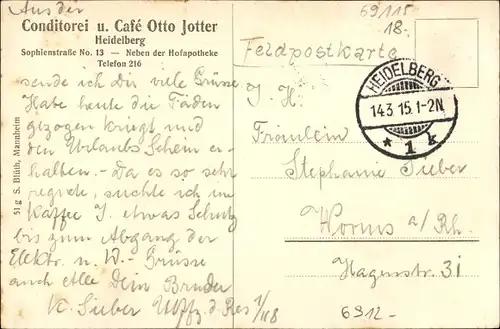 Aus der
Conditorei u. Café Otto Jotter
Heidelberg
Sophienstraße No. 13 — Neben der Hofapotheke
Telefon 216
sende ich Dir viele Grüsse
Habe heute die Fäden
gezogen kriegt und
den Urlaubs Schein er-
halten. - Da es so sehr
regnete, suchte ich im
Kaffee J. etwas Schutz
bis zum Abgang der
Elektr. n. W. - Grüsse
auch Alle Dein Bruder
K. Sieber Uffz. d. Res 1/118
51 g S. Blüth, Mannheim
69115
18.-
Feldpostkarte
HEIDELBERG
14.3.15.1-2N
* 1 k
Fräulein
Stephanie Sieber
Worms a/Rh.
Hagenstr. 31
6912-